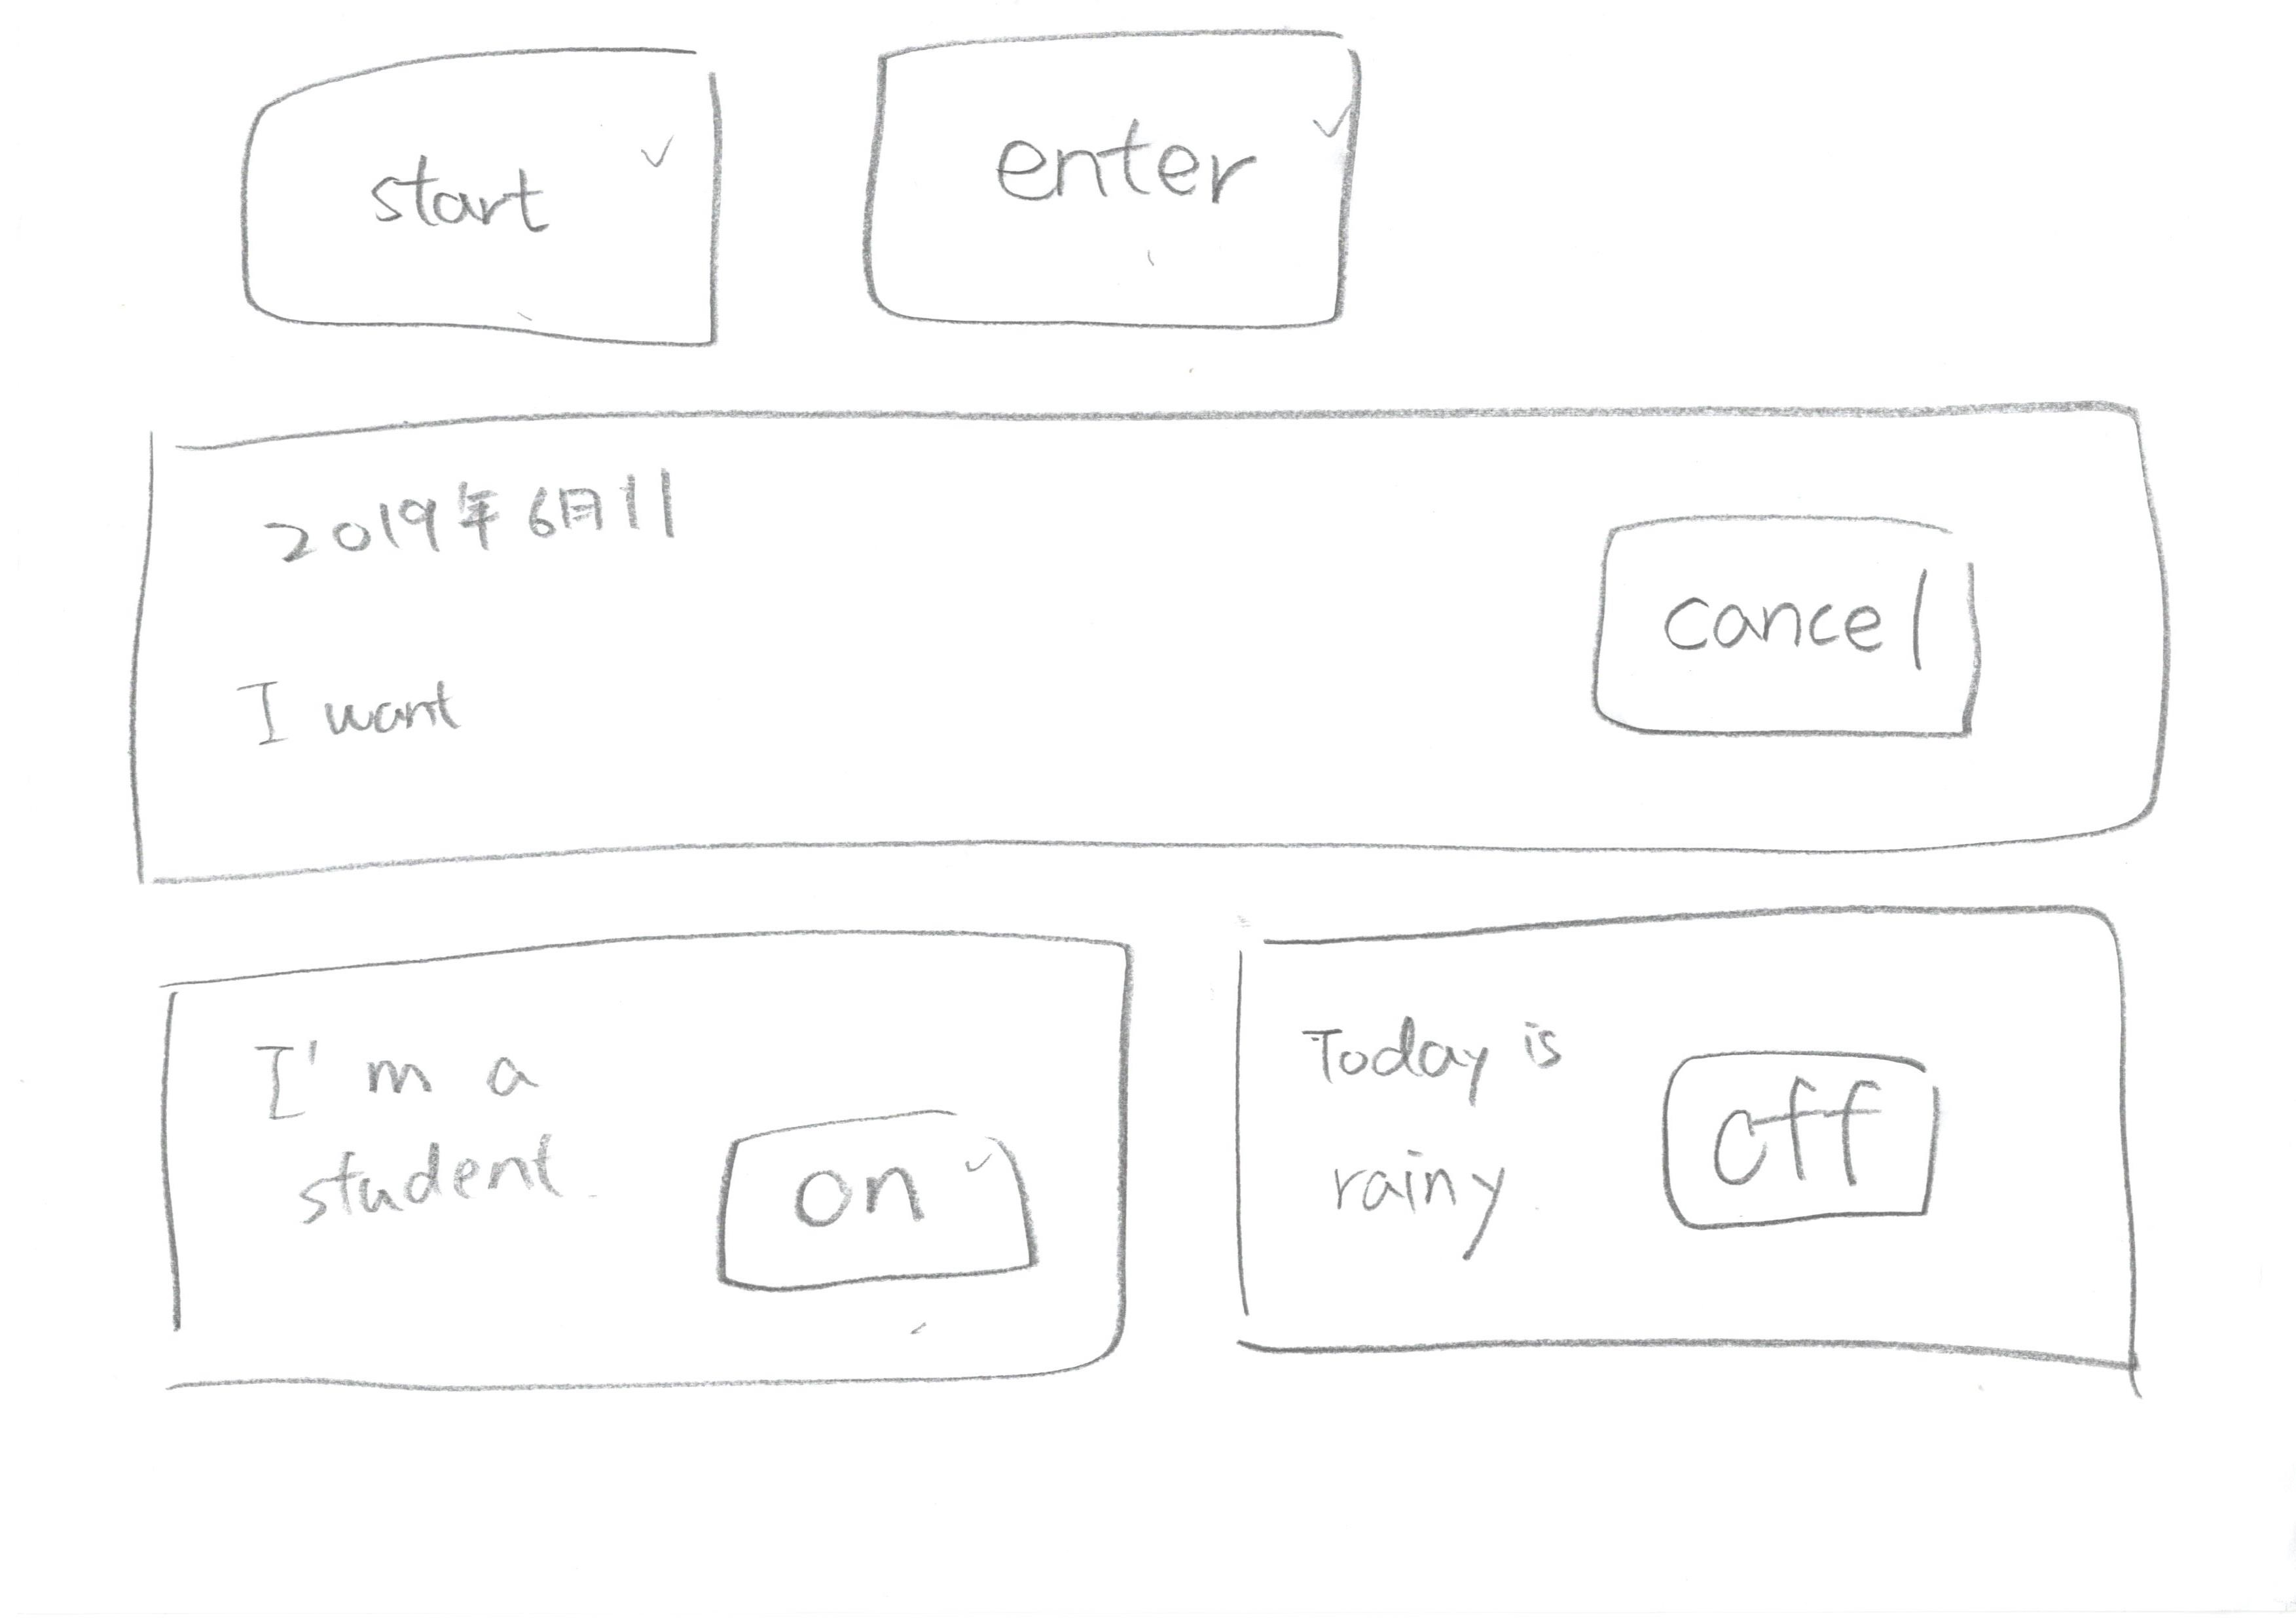 start
enter
2019年6月11
I want
cancel
I'm a
student.
on
Today is
rainy
off